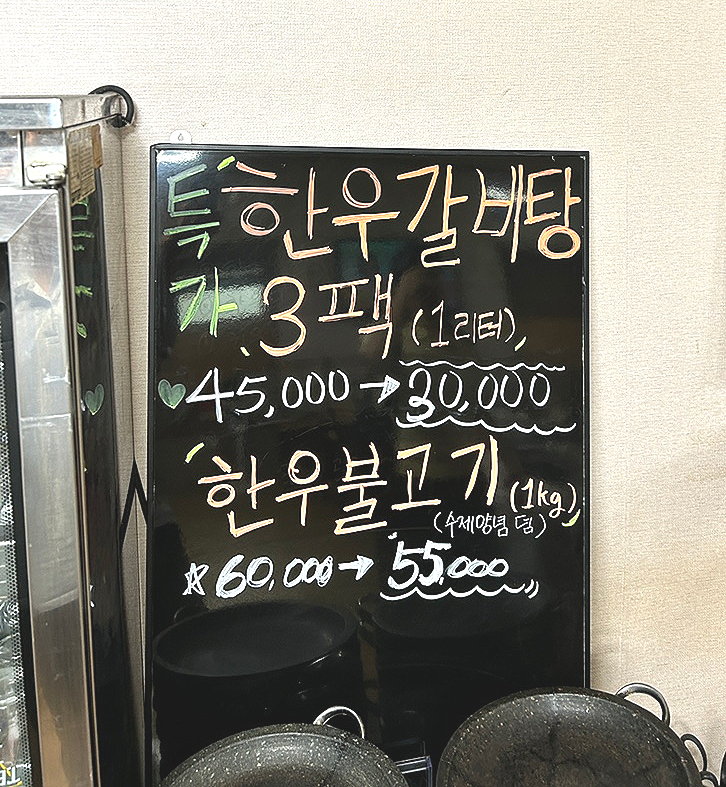 특가
한우갈비탕
3팩 (1리터)
45,000 → 30,000
한우불고기 (1kg)
(수제양념 덤)
60,000 → 55,000